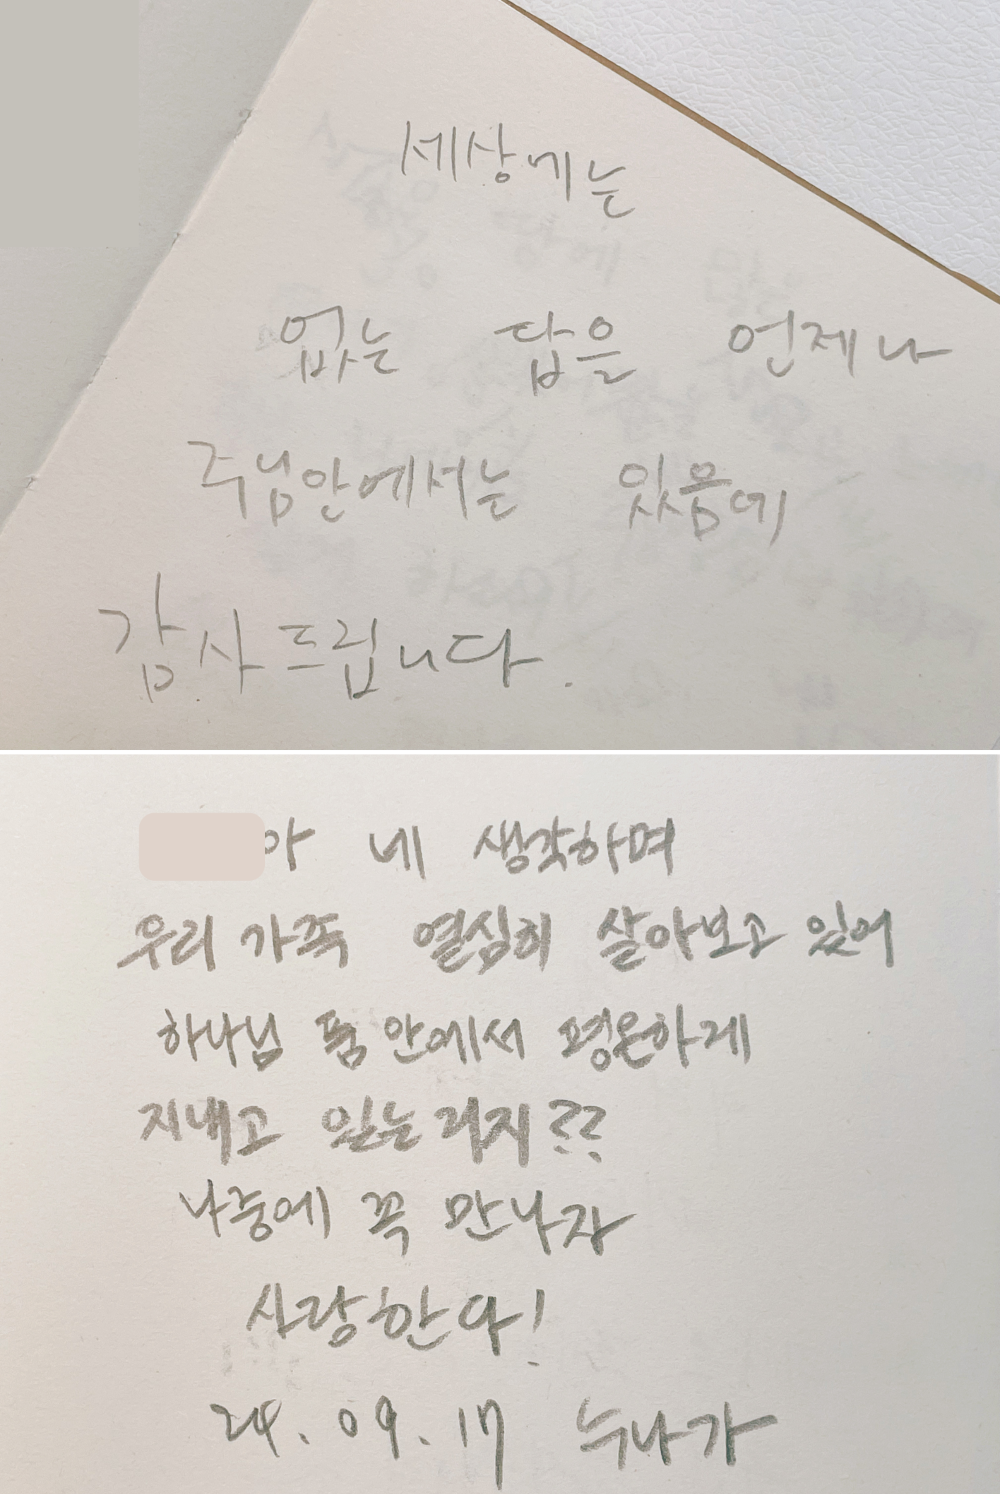 세상에는
없는 답을 언제나
주님안에서는 있음에
감사드립니다.
아 네 생각하며
우리 가족 열심히 살아보고 있어
하나님 품 안에서 평온하게
지내고 있는거지??
나중에 꼭 만나자
사랑한다!
24. 09. 17 누나가